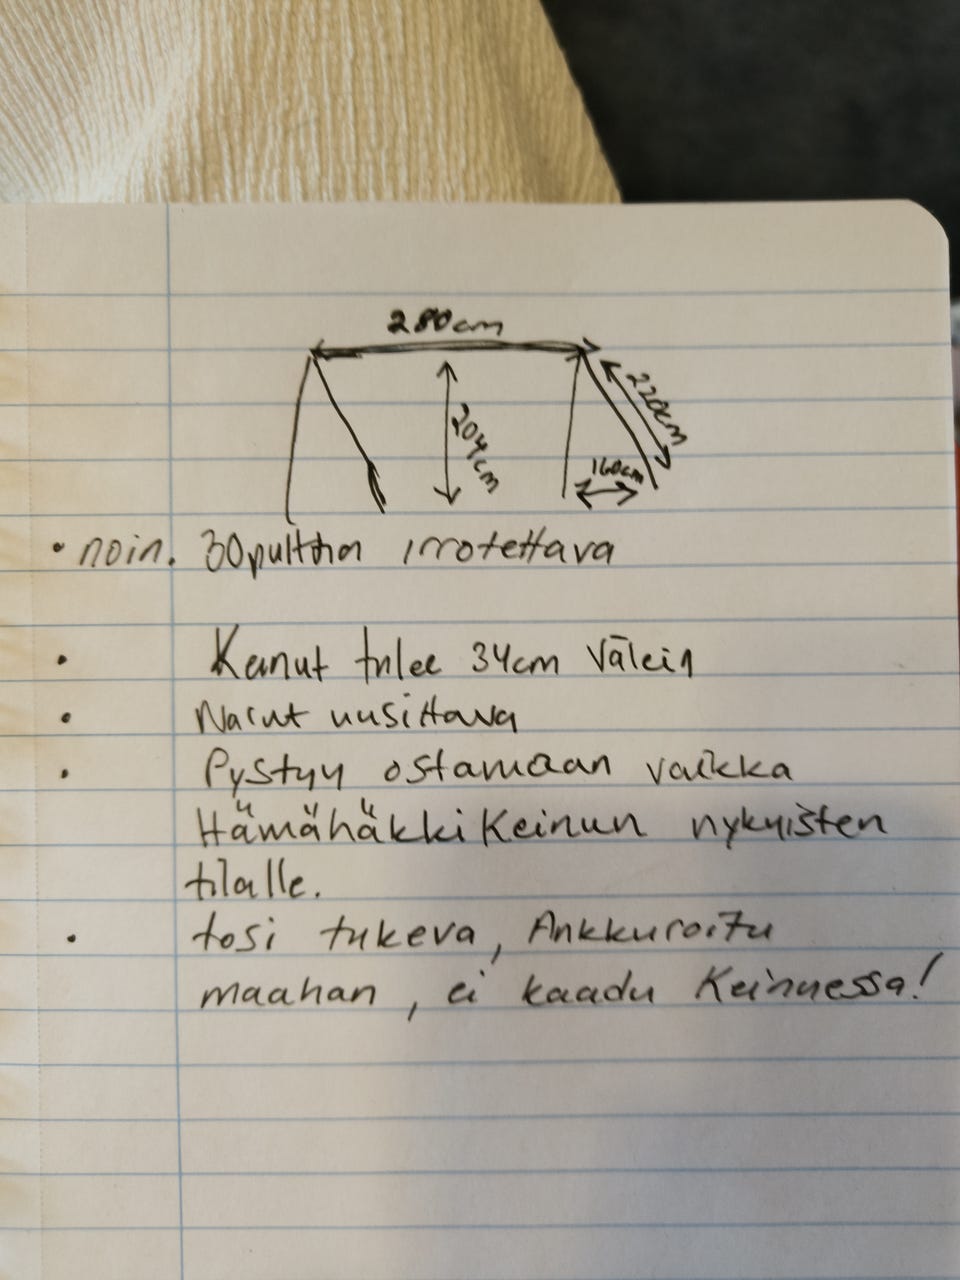 280cm
204cm
220cm
160cm
• noin. 30 pulttia irrotettava
• Keinut tulee 34cm välein
• Narut uusittava
• Pystyy ostamaan vaikka
Hämähäkki Keinun nykyisten
tilalle.
• tosi tukeva, Ankkuroitu
maahan, ei kaadu Keinuessa!